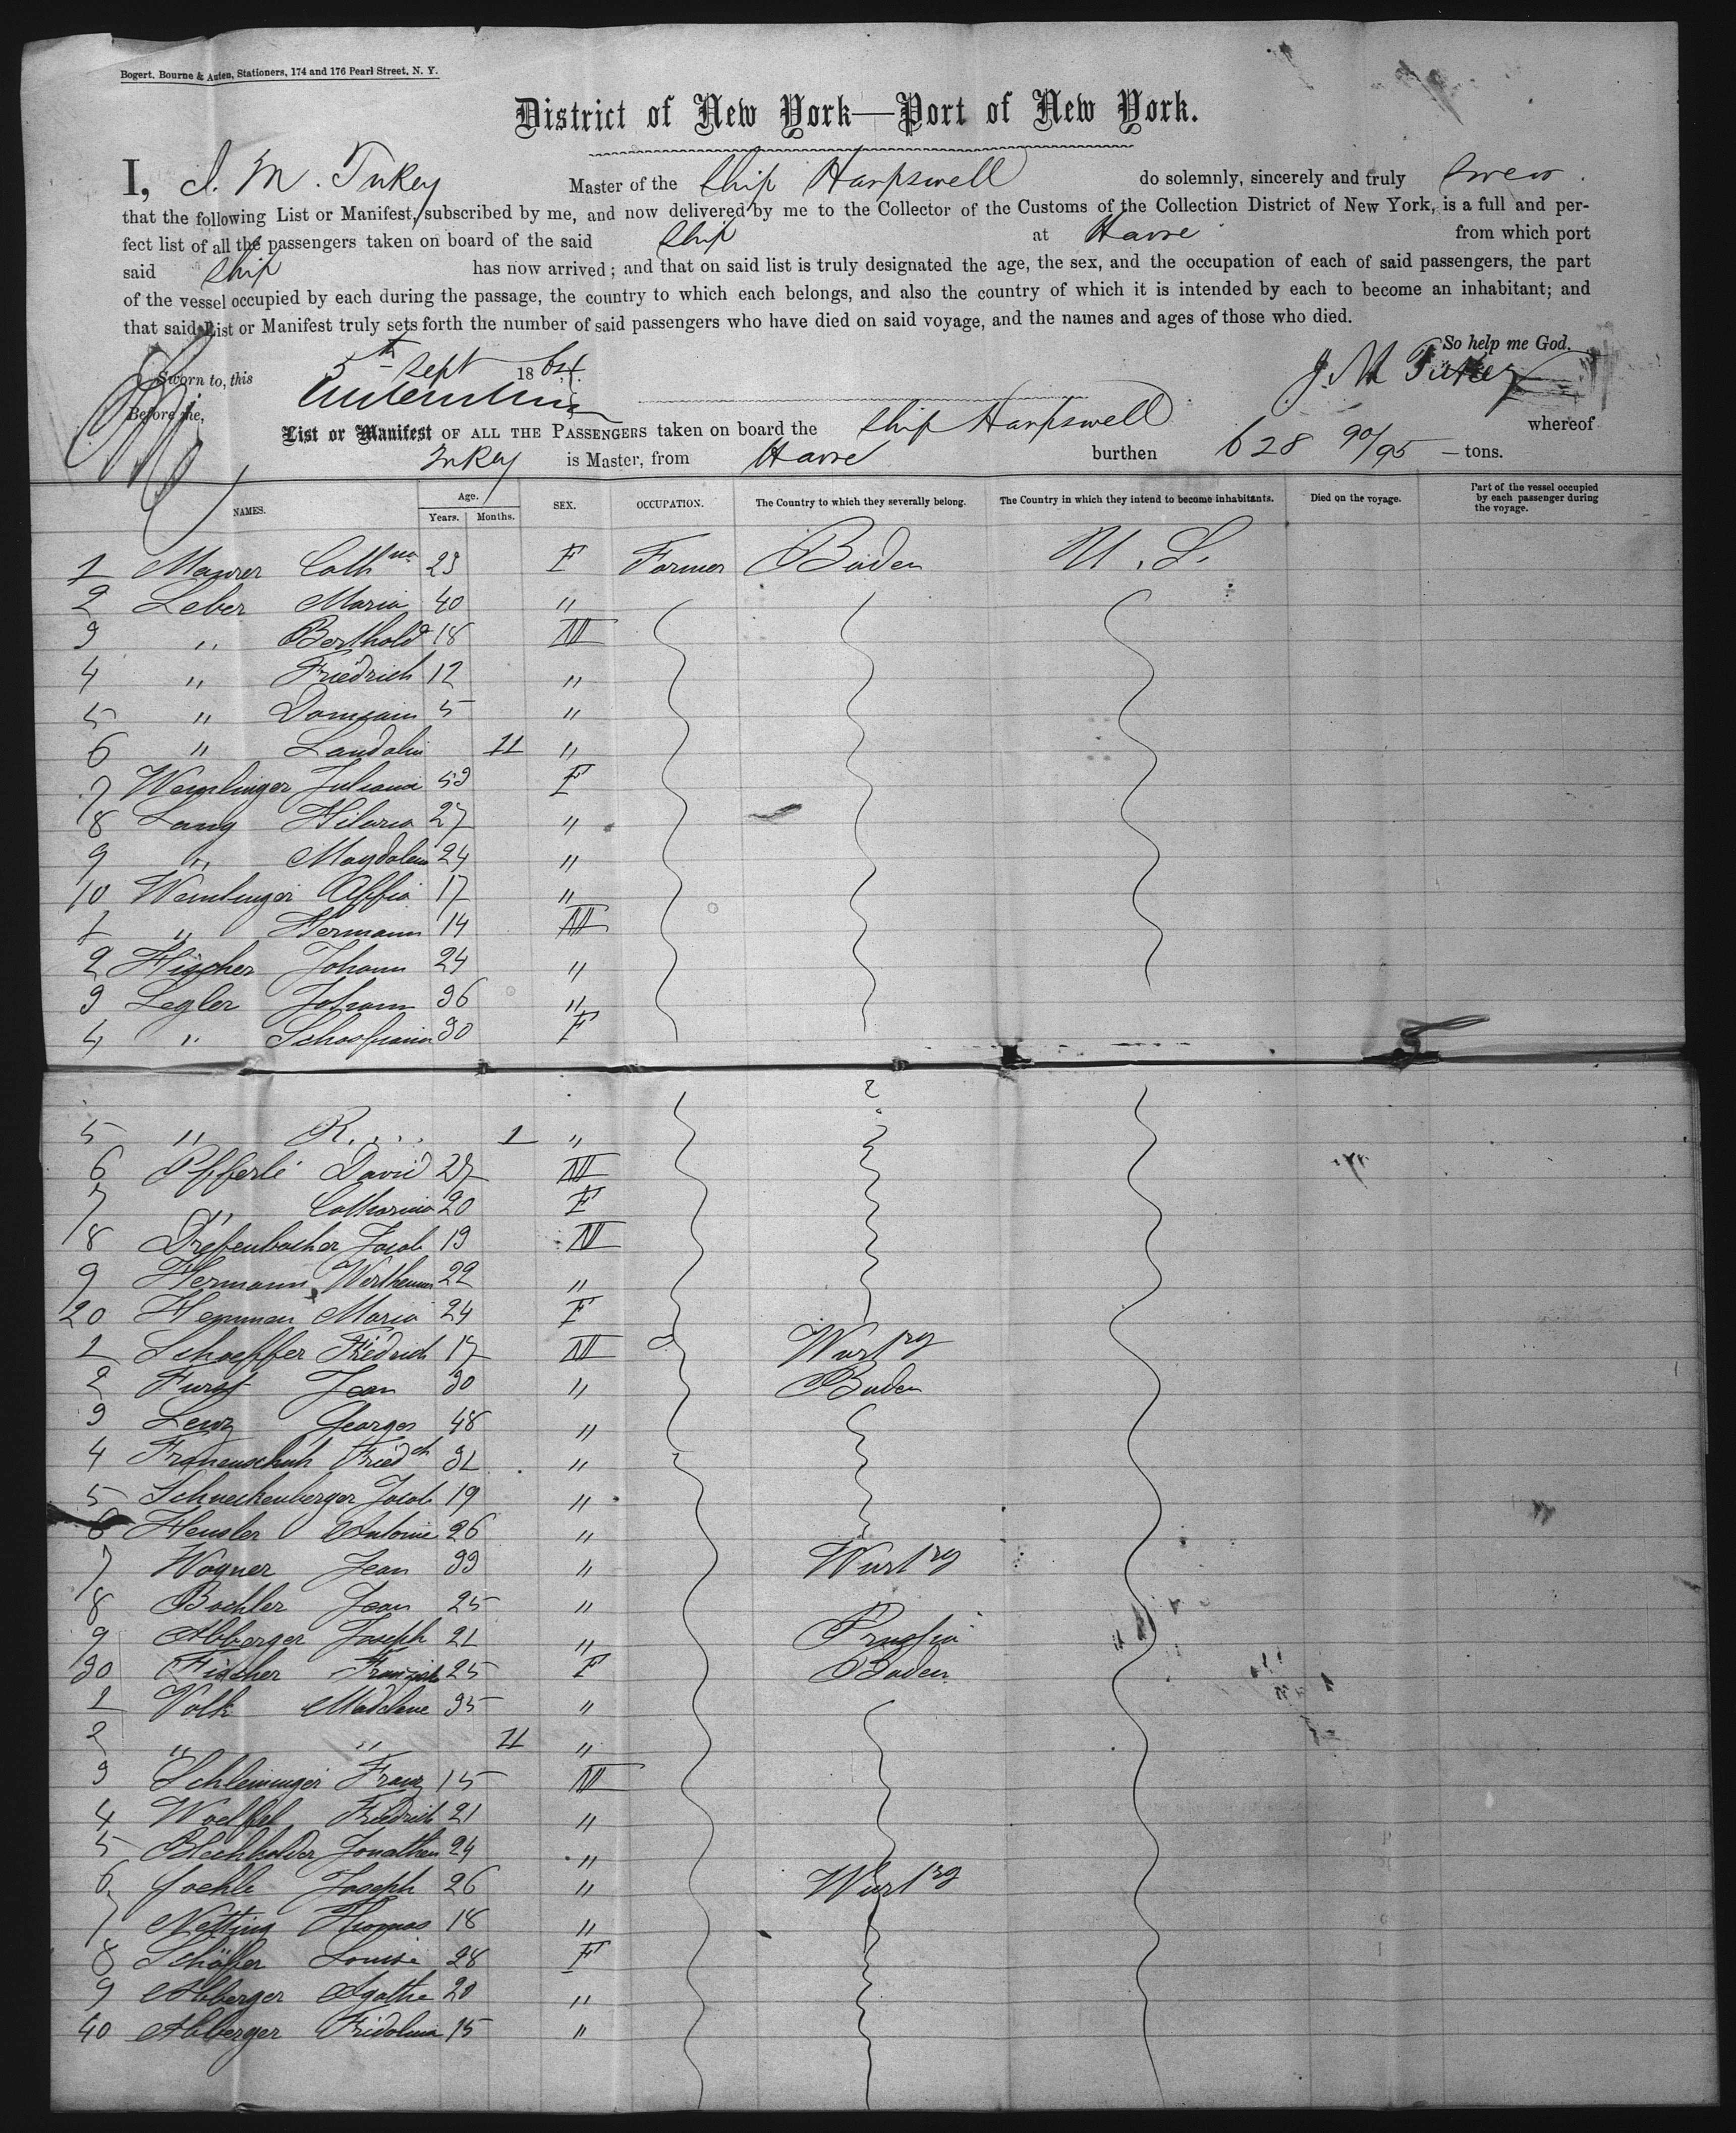 Bogert, Bourne & Auten, Stationers, 174 and 176 Pearl Street, N. Y.
District of New York—Port of New York.
I, J. M. Tukey Master of the Ship Harpswell do solemnly, sincerely and truly swear
that the following List or Manifest, subscribed by me, and now delivered by me to the Collector of the Customs of the Collection District of New York, is a full and per-
fect list of all the passengers taken on board of the said Ship at Havre from which port
said Ship has now arrived; and that on said list is truly designated the age, the sex, and the occupation of each of said passengers, the part
of the vessel occupied by each during the passage, the country to which each belongs, and also the country of which it is intended by each to become an inhabitant; and
that said List or Manifest truly sets forth the number of said passengers who have died on said voyage, and the names and ages of those who died.
So help me God.
Sworn to, this 5th Sept 1864. J. M Tukey
Before me,
List or Manifest OF ALL THE PASSENGERS taken on board the Ship Harpswell whereof
Tukey is Master, from Havre burthen 628 90/95 — tons.
NAMES. Age. Years. Months. SEX. OCCUPATION. The Country to which they severally belong. The Country in which they intend to become inhabitants. Died on the voyage. Part of the vessel occupied by each passenger during the voyage.
1 Maurer Cathna 23 F Farmer Baden U. S.
2 Leber Maria 40 "
3 " Berthold 18 M
4 " Friedrich 12 "
5 " Damian 5 "
6 " Landolin 11 "
7 Wemlinger Juliana 53 F
8 Lang Hilaria 27 "
9 " Magdalena 24 "
10 Wemlinger Affia 17 "
1 " Hermann 14 M
2 Fischer Johann 24 "
3 Legler Johann 36 "
4 " 30 F
5 " R.... 1 "
6 Pfferlé David 27 M
7 " Catharina 20 F
8 Diefenbacher Jacob 19 M
9 Hermann, Wertheim 22 "
20 Hemman Maria 24 F
1 Schaeffer Friedrich 17 M Wurtbg
2 Furst Jean 30 " Baden
3 Lenz Georges 48 "
4 Frauenschuh Friedch 31 "
5 Schneckenberger Jacob 19 "
6 Hensler Antoine 26 "
7 Wagner Jean 33 " Wurtbg
8 Bachler Jean 25 "
9 Abberger Joseph 21 " Prussia
30 Fischer 25 F Baden
1 Volk Madelene 35 "
2 " " 11 "
3 Schleininger Franz 15 M
4 Woelfel Friedrich 21 "
5 Blechholder Jonathan 24 "
6 Joseph 26 " Wurtbg
7 Netting Thomas 18 "
8 Schäfer Louise 28 F
9 Abberger Agathe 20 "
40 Abberger Fridolina 15 "